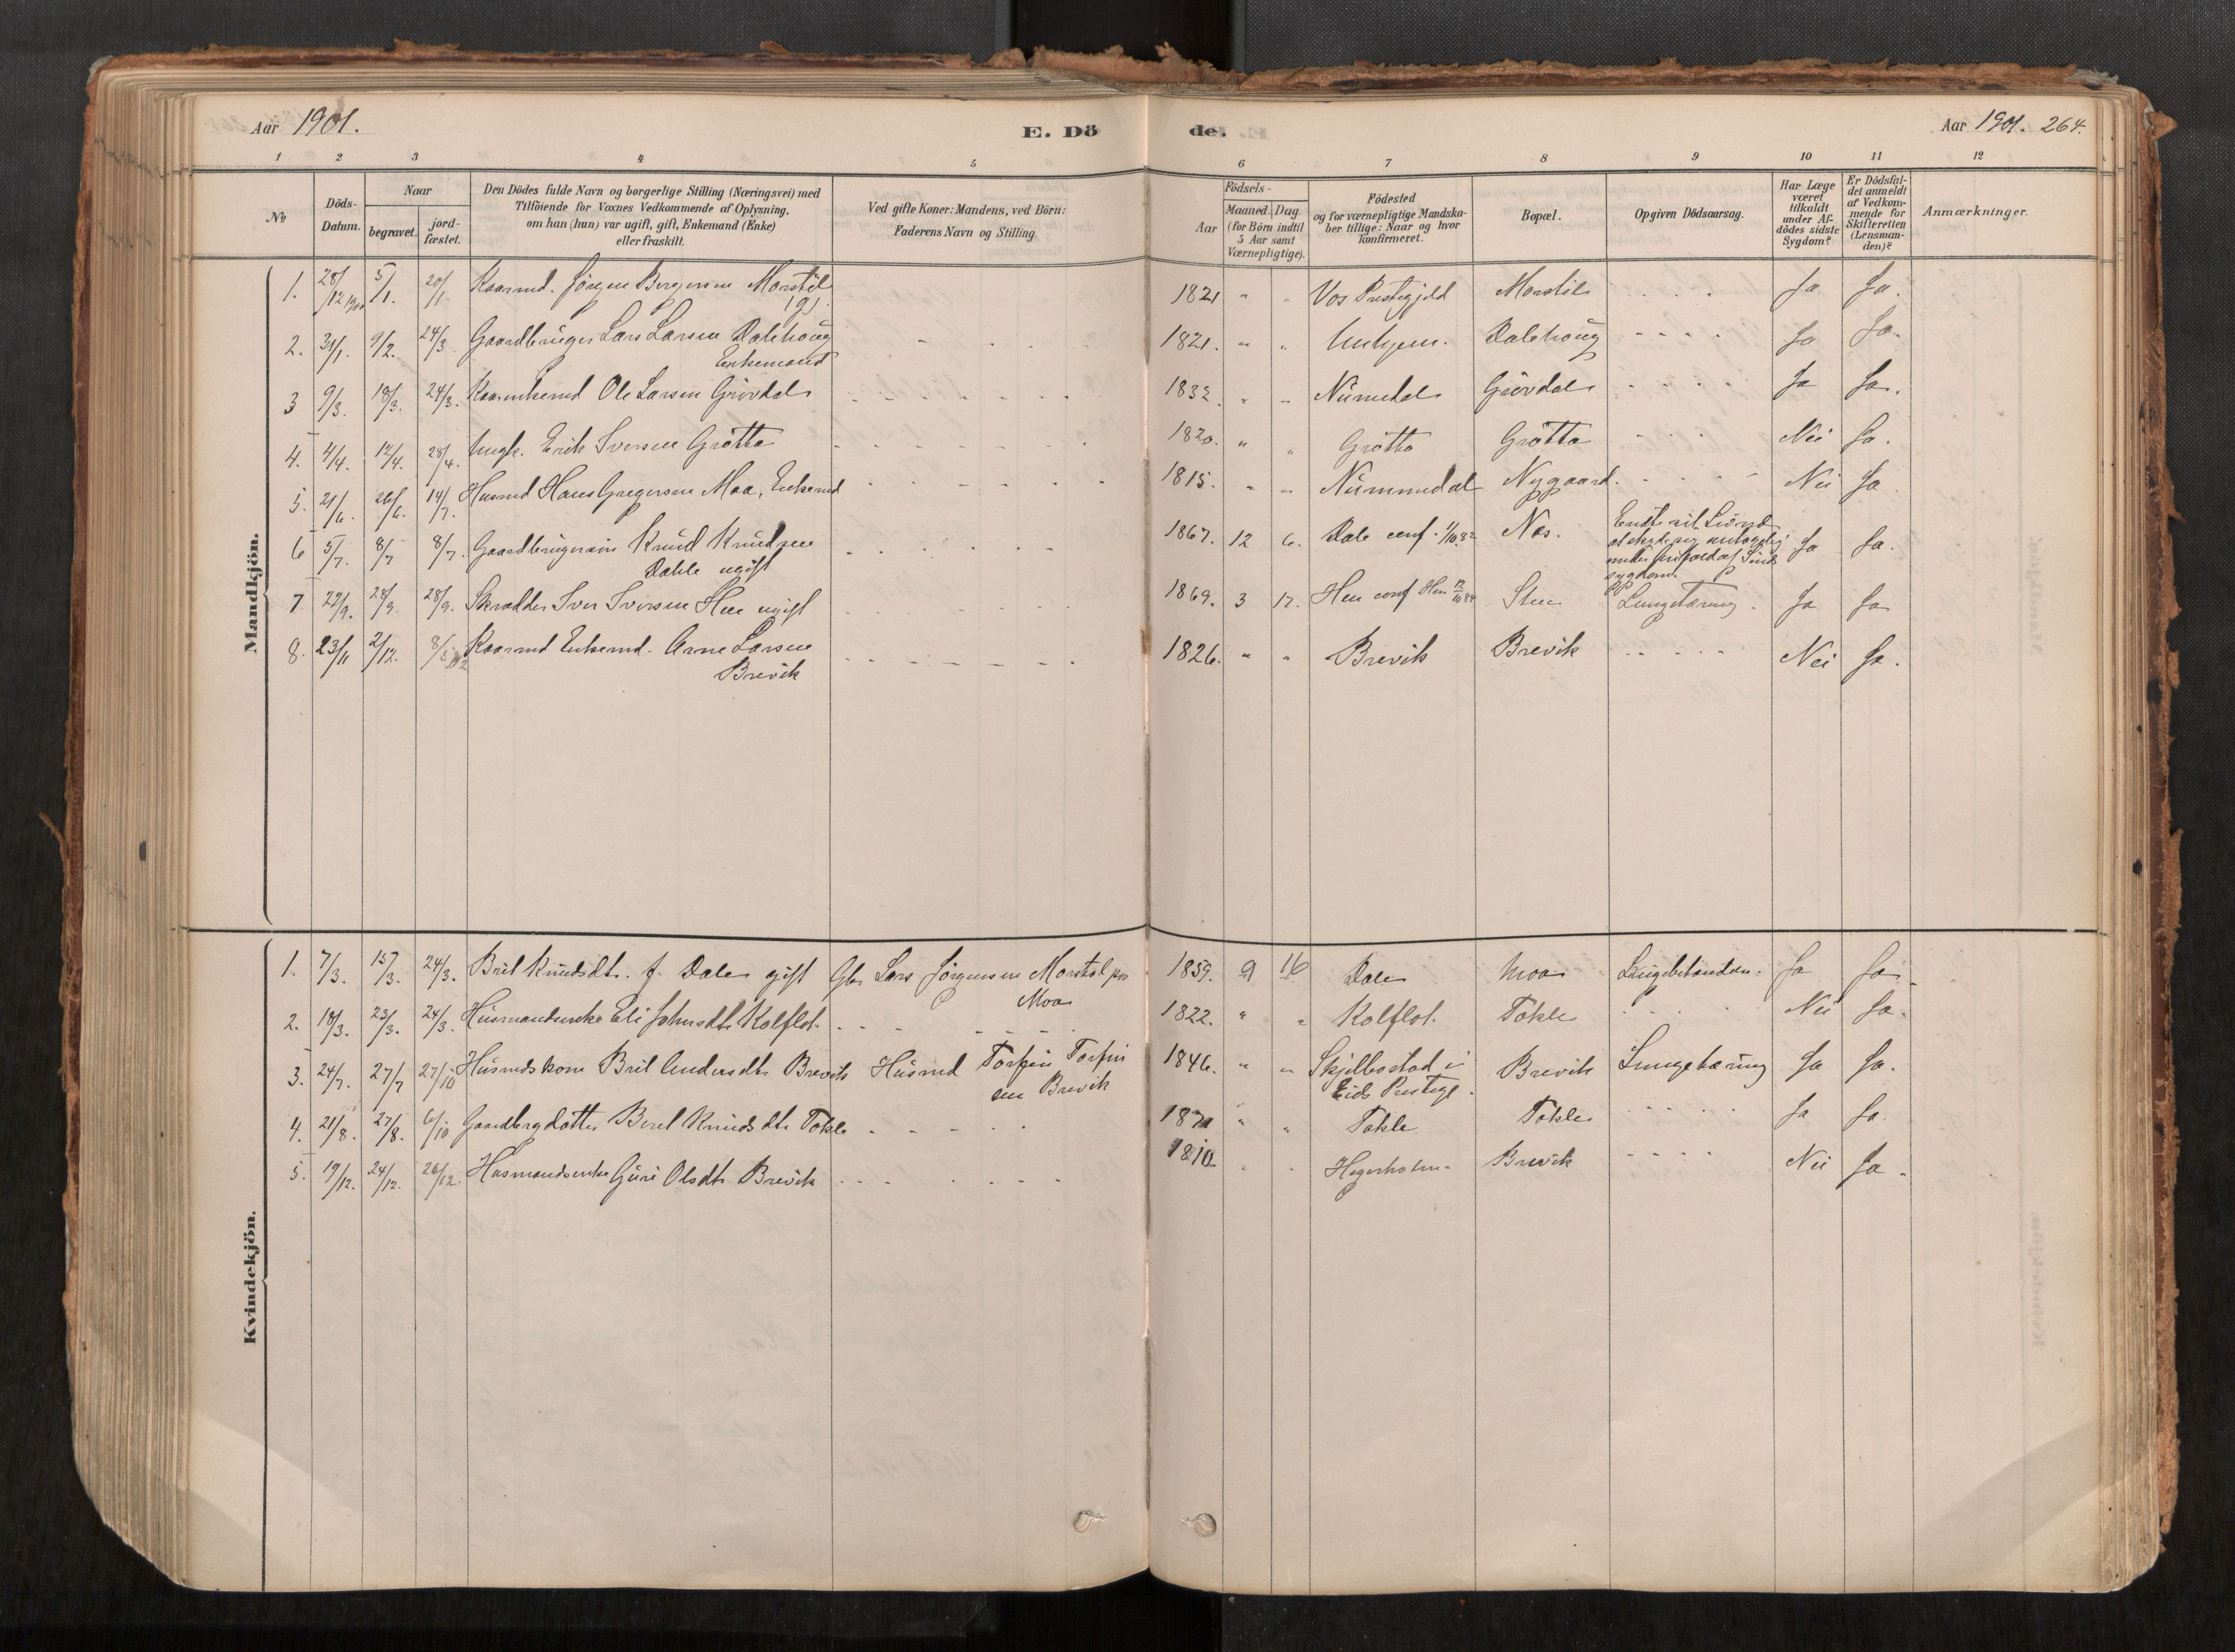 Aar 1901.
E. Dö
de.
Aar 1901. 264.
1 2 3 4 5 6 7 8 9 10 11 12
No
Döds-Datum.
Naar
begravet.
jord-fæstet.
Den Dödes fulde Navn og borgerlige Stilling (Næringsvei) med
Tilföiende for Voxnes Vedkommende af Oplysning,
om han (hun) var ugift, gift, Enkemand (Enke)
eller fraskilt.
Ved gifte Koner: Mandens, ved Börn:
Faderens Navn og Stilling.
Födsels-
Aar
Maaned. Dag.
(for Börn indtil
5 Aar samt
Værnepligtige).
Födested
og for værnepligtige Mandska-
ber tillige: Naar og hvor
konfirmeret.
Bopæl.
Opgiven Dödsaarsag.
Har Læge
været
tilkaldt
under Af-
dödes sidste
Sygdom?
Er Dödsfal-
det anmeldt
af Vedkom-
mende for
Skifteretten
(Lensman-
den)?
Anmærkninger.
Mandkjön.
1. 28/12 5/1. 20/1. Kaarmd. Jörgen Bergersen Morstöl 1821 " " Vos Prestegjeld Morstöl Ja Ja.
2. 31/1. 9/2. 24/3 Gaardbruger Lars Larsen Dalehoug 1821. " " Dalehoug Ja Ja.
Enkemand
3 9/3. 18/3. 24/3. Ole Larsen Grövdal 1832. " " Grövdal Ja Ja.
4. 4/4. 12/4. 28/4. Ungk. Erik Iversen Grötta 1820. " " Grötta Grötta Nei Ja.
5. 21/6. 26/6. 14/7. Husmd Hans Gregersen Moa, Enkemd 1815. " " Nygaard. Nei Ja
6 5/7. 8/7 8/7. Gaardbrugersön Knud Knudsen 1867. 12 6. Dale conf. 1/10.82 Nes. Endte sit Liv ved
at skyde sig
under
sygdom. Ja Ja.
Dahle ugift
7. 22/9. 28/9. 28/9. Skrædder Iver Iversen Hen ugift 1869. 3 17. Hen conf Hen 12/10 84 Lungetæring. Ja Ja
8. 23/11 2/12. 8/5 02 Kaarmd Enkemd. Arne Larsen 1826. " " Brevik Brevik Nei Ja.
Brevik
Kvindekjön.
1. 7/3. 15/3. 24/3. Brit Knudsdt. f. Dale gift Gbr Lars Jörgensen Morstöl paa 1859. 9 16 Dale Moa Ja Ja
Moa
2. 18/3. 23/3. 24/3. Husmandsenke Eli Johnsdt. Kolflot. 1822. " " Kolflot. Tokle Nei Ja.
3. 24/7. 27/7 27/10 Husmdskone Brit Andersdt. Brevik Husmd Torfin Torfin 1846. " " Skjelbostad i Brevik Lungetæring Ja Ja.
sen Brevik Eids Prestegj.
4. 21/8. 27/8. 6/10 Gaardbrgdotter Beret Knudsdt. Tokle " " Tokle Tokle Ja Ja.
5. 19/12. 24/12. 26/12. Husmandsenke Guri Olsdt. Brevik 1810 Hegerholm. Brevik Nei Ja.